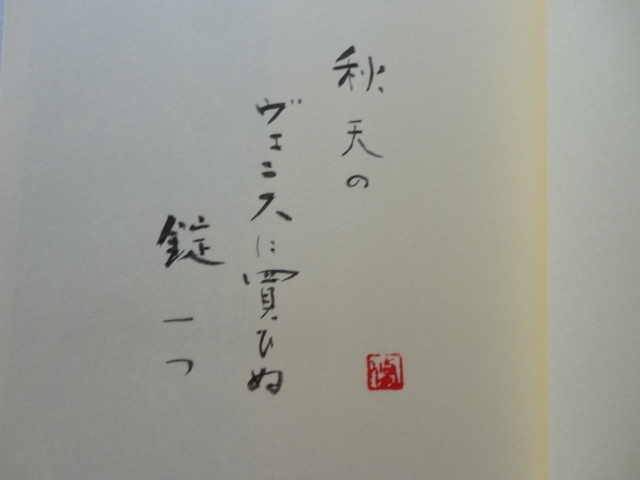 秋天の
ヴェニスに買ひぬ
錠一つ